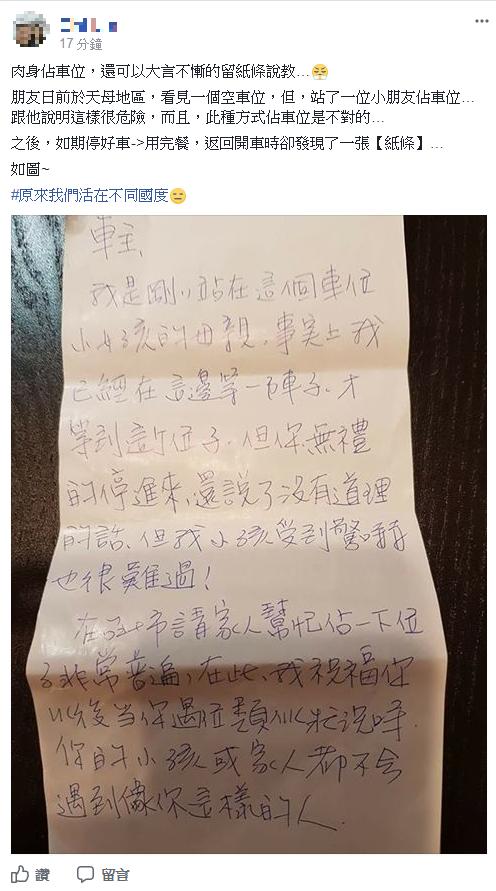 17分鐘
肉身佔車位，還可以大言不慚的留紙條說教...
朋友日前於天母地區，看見一個空車位，但，站了一位小朋友佔車位...
跟他說明這樣很危險，而且，此種方式佔車位是不對的...
之後，如期停好車->用完餐，返回開車時卻發現了一張【紙條】...
如圖~
#原來我們活在不同國度
車主、
我是剛剛站在這個車位
小女孩的母親，事実上我
已經在這邊等一下陣子，才
等到這位子，但你無禮
的停進來，還說了沒有道理
的話，但我小孩受到驚嚇
也很難過！
在 市請家人幫忙佔一下位
子非常普遍，在此，我祝福你
以後當你遇 類似狀況時，
你的小孩或家人都不會
遇到像你這樣的人.
讚
留言